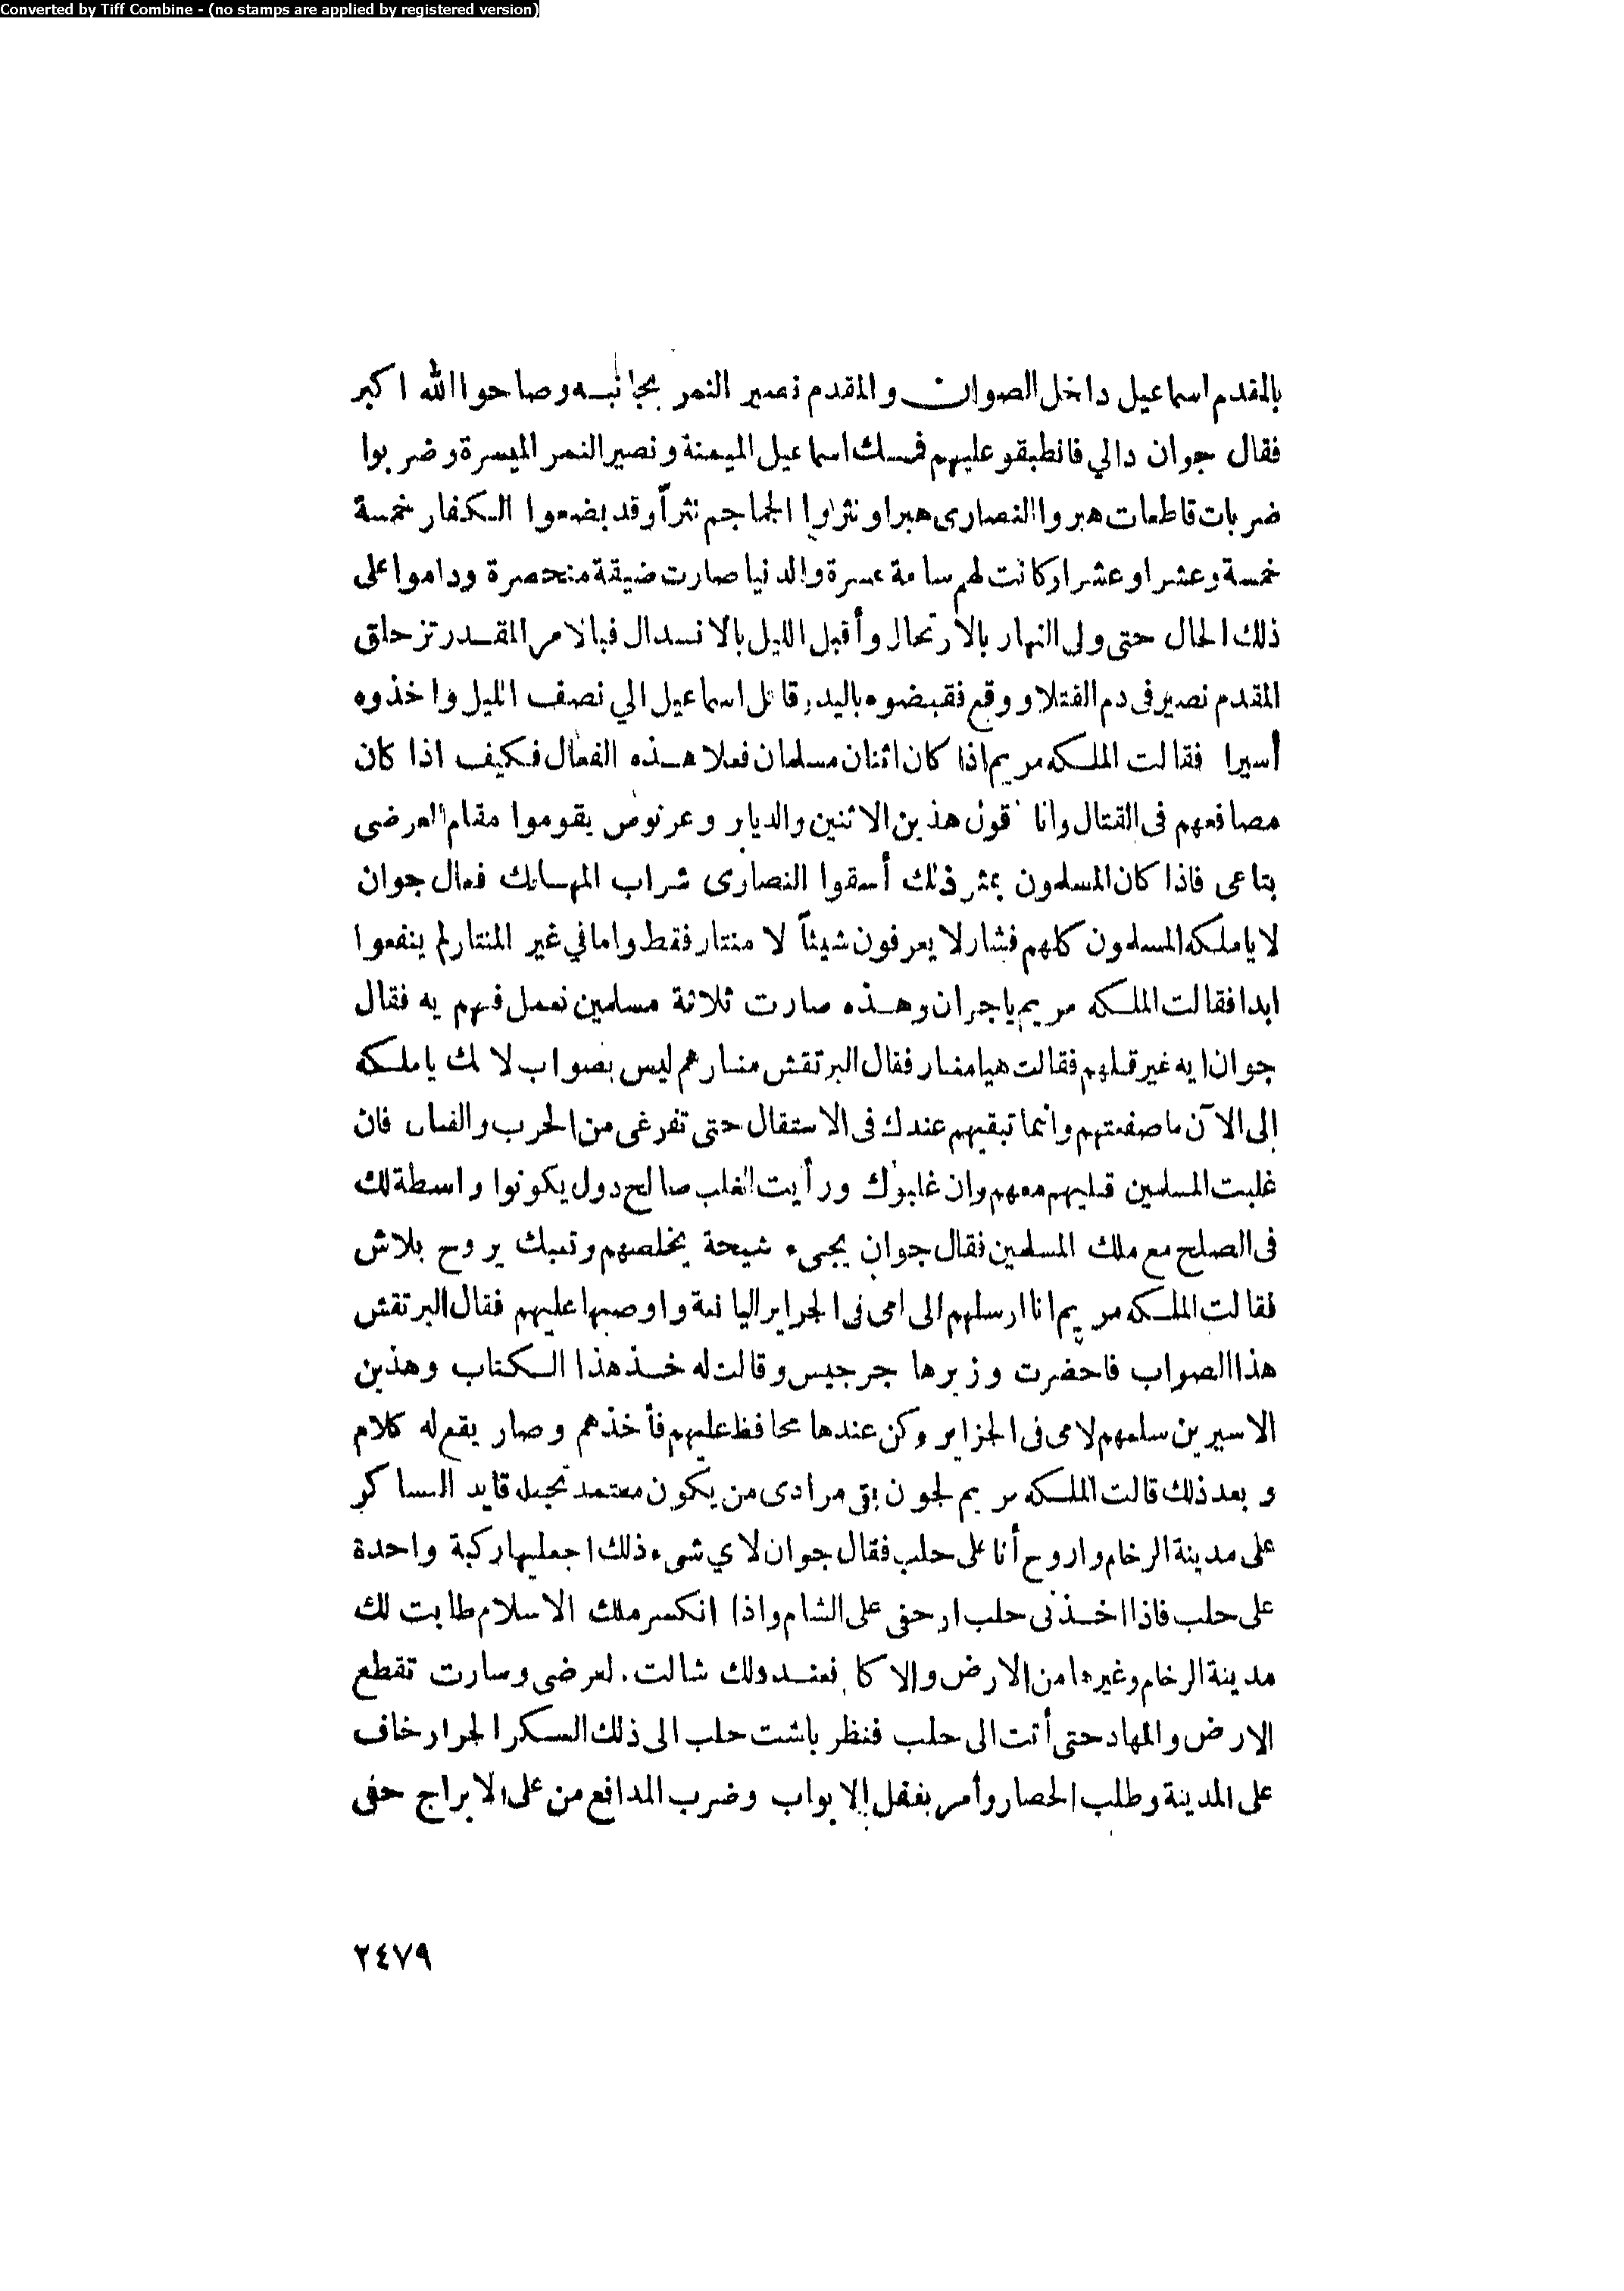 Converted by Tiff Combine - (no stamps are applied by registered version)
بالمقدم اسماعيل داخل الصوان والمقدم نصير النمر بجانبه وصاحوا الله اكبر
فقال جوان دالي فانطبقو عليهم فمسك اسماعيل الميمنة ونصير النمر الميسرة وضربوا
ضربات قاطعات هبروا النصارى هبرا ونثروا الجماجم نثرآ وقد بضعوا الكفار خمسة
خمسة وعشرا وعشرا وكانت لهم ساعة عسرة والدنيا صارت ضيقة منحصرة وداموا على
ذلك الحال حتى ولى النهار بالارتحال وأقبل الليل بالانسدال فبالامر المقدر تزحلق
المقدم نصير فى دم القتلا ووقع فقبضوه باليد وقاتل اسماعيل الي نصف الليل واخذوه
أسيرا فقالت الملكه مريم اذا كان اثنان مسلمان فعلا هذه الفعال فكيف اذا كان
مصافعهم فى القتال وانا قول هذين الاثنين والديابر وعرنوص يقوموا مقام العرضى
بتاعى فاذا كان المسلمون بمثر ذلك أسقوا النصارى شراب المهالك فقال جوان
لا ياملكه المسلمون كلهم فشار لا يعرفون شيئآ لا منتار فقط واما في غير المنتار لم ينفعوا
ابدا فقالت الملكه مريم ياجوان وهذه صارت ثلاثة مسلمين نعمل فيهم يه فقال
جوان ايه غير قتلهم فقالت هيا منار فقال البرتقش منارهم ليس بصواب لا لك ياملكه
إلى الآن ماصفيتهم وانما تبقيهم عندك فى الاستقال حتى تفرغى من الحرب والقتال فان
غلبت المسلمين قتليهم معهم وان غلبوك ورأيت الغلب صالح دول يكونوا واسطة لك
فى الصلح مع ملك المسلمين فقال جوان يجىء شيحة يخلصهم وتعبك يروح بلاش
فقالت الملكه مريم انا ارسلهم الى امى فى الجراير اليانعة واوصيها عليهم فقال البرتقش
هذا الصواب فاحضرت وزيرها جرجيس وقالت له خذ هذا الكتاب وهذين
الاسيرين سلمهم لامى فى الجزاير وكن عندها محافظ عليهم فأخذهم وصار يقع له كلام
وبعد ذلك قالت الملكه مريم لجون بقى مرادى من يكون معتمد نجعله قايد العساكر
على مدينة الرخام واروح أنا على حلب فقال جوان لاي شىء ذلك اجعليها ركبة واحدة
على حلب فاذا اخذتى حلب ارحفى على الشام واذا انكسر ملك الاسلام طابت لك
مدينة الرخام وغيرها من الارض والاكام فعند ذلك شالت العرضى وسارت تقطع
الارض والمهاد حتى أتت الى حلب فنظر باشت حلب الى ذلك العسكر الجرار خاف
على المدينة وطلب الحصار وأمر بقفل الابواب وضرب المدافع من على الابراج حفى
٢٤٧٩